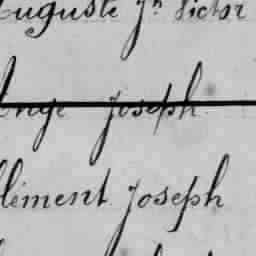 Auguste Jn Victor
Ange Joseph
Clément Joseph